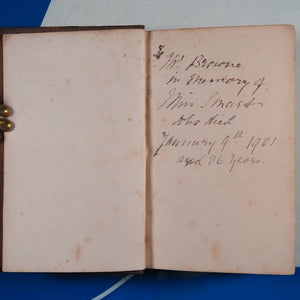 To
Mrs Browne
in memory of
Miss Smart
who died
January 9th 1901
aged 86 Years.